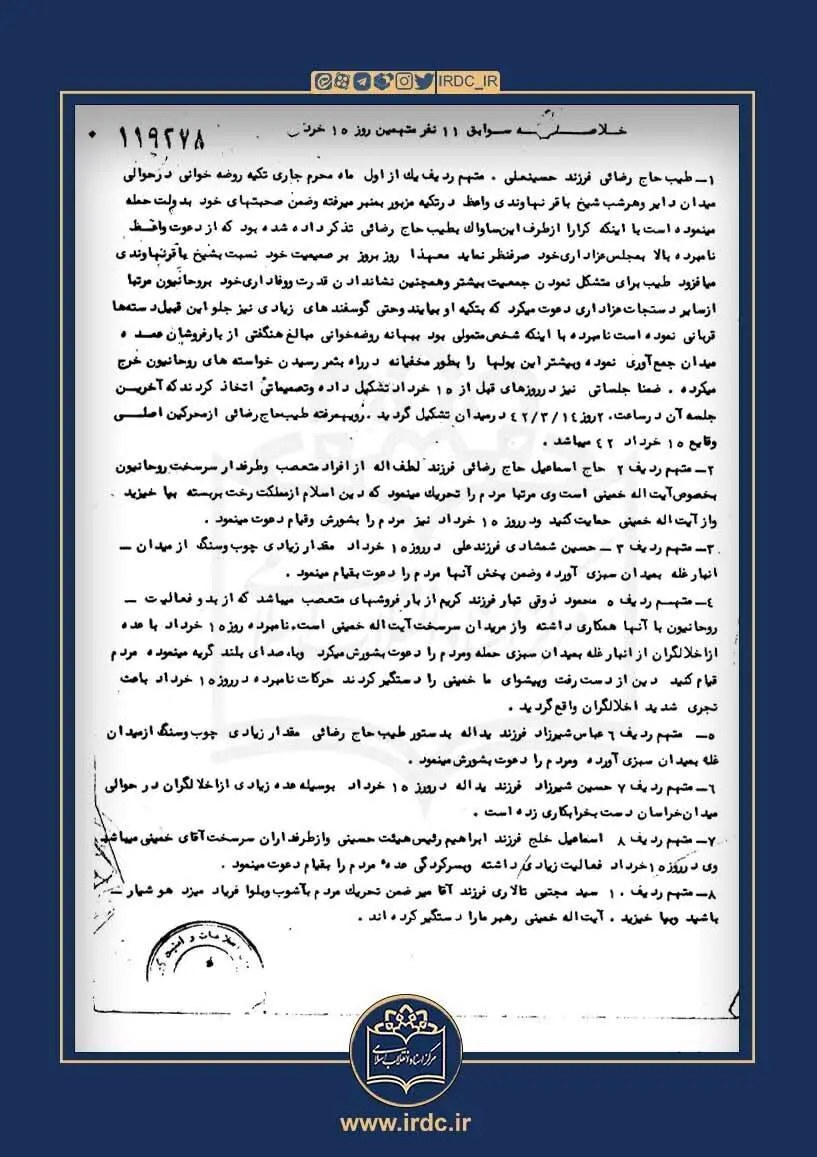 IRDC_IR
۱۱۹۲۷۸
خلاصه سوابق ۱۱ نفر متهمین روز ۱۵ خرداد
۱ــ طیب حاج رضائی فرزند حسینعلی . متهم ردیف یك از اول ماه محرم جاری تکیه روضه خوانی درحوالی
میدان دایر وهرشب شیخ باقر نهاوندی واعظ درتکیه مزبور بمنبر میرفته وضمن صحبتهای خود بدولت حمله
مینموده است با اینکه کرارا ازطرف این ساواك بطیب حاج رضائی تذکر داده شده بود که از دعوت واعظ
نامبرده بالا بمجلس عزاداری خود صرفنظر نماید معهذا روز بروز بر صمیمیت خود نسبت بشیخ باقرنهاوندی
میافزود طیب برای متشکل نمودن جمعیت بیشتر وهمچنین نشاندادن قدرت ووفاداری خود بروحانیون مرتبا
ازسایر دستجات عزاداری دعوت میکرد که بتکیه او بیایند وحتی گوسفند های زیادی نیز جلو این قبیل دسته‌ها
قربانی نموده است نامبرده با اینکه شخص متمولی بود ببهانه روضه‌خوانی مبالغ هنگفتی از بارفروشان عمده
میدان جمع‌آوری نموده وبیشتر این پولها را بطور مخفیانه درراه بثمر رسیدن خواسته های روحانیون خرج
میکرده . ضمنا جلساتی نیز درروزهای قبل از ۱۵ خرداد تشکیل داده وتصمیماتی اتخاذ کردند که آخرین
جلسه آن درساعت ۲۰ روز ۴۲/۳/۱۴ درمیدان تشکیل گردید . رویهمرفته طیب حاج رضائی ازمحرکین اصلی
وقایع ۱۵ خرداد ۴۲ میباشد .
۲ــ متهم ردیف ۲ حاج اسماعیل حاج رضائی فرزند لطف اله از افراد متعصب وطرفدار سرسخت روحانیون
بخصوص آیت اله خمینی است وی مرتبا مردم را تحریك مینمود که دین اسلام ازمملکت رخت بربسته بپا خیزید
واز آیت اله خمینی حمایت کنید ودرروز ۱۵ خرداد نیز مردم را بشورش وقیام دعوت مینمود .
۳ــ متهم ردیف ۳ــ حسین شمشادی فرزندعلی درروز ۱۵ خرداد مقدار زیادی چوب وسنگ از میدان ــ
انبار غله بمیدان سبزی آورده وضمن پخش آنها مردم را دعوت بقیام مینمود .
۴ــ متهم ردیف ۵ محمود ذوقی تبار فرزند کریم از بار فروشهای متعصب میباشد که از بدو فعالیت ــ
روحانیون با آنها همکاری داشته واز مریدان سرسخت آیت اله خمینی است، نامبرده روز ۱۵ خرداد با عده
ازاخلالگران از انبار غله بمیدان سبزی حمله ومردم را دعوت بشورش میکرد وباصدای بلند گریه مینموده مردم
قیام کنید دین از دست رفت وپیشوای ما خمینی را دستگیر کردند حرکات نامبرده درروز ۱۵ خرداد باعث
تجری شدید اخلالگران واقع گردید .
۵ــ متهم ردیف ۶ عباس شیرزاد فرزند یداله بدستور طیب حاج رضائی مقدار زیادی چوب وسنگ ازمیدان
غله بمیدان سبزی آورده ومردم را دعوت بشورش مینمود .
۶ــ متهم ردیف ۷ حسین شیرزاد فرزند یداله درروز ۱۵ خرداد بوسیله عده زیادی ازاخلالگران در حوالی
میدان خراسان دست بخرابکاری زده است .
۷ــ متهم ردیف ۸ اسماعیل خلج فرزند ابراهیم رئیس هیئت حسینی وازطرفداران سرسخت آقای خمینی میباشد
وی درروز ۱۵ خرداد فعالیت زیادی داشته وبسرکردگی عده مردم را بقیام دعوت مینمود .
۸ــ متهم ردیف ۱۰ سید مجتبی تالاری فرزند آقا میر ضمن تحریك مردم بآشوب وبلوا فریاد میزد هوشیار ــ
باشید وبپا خیزید . آیت اله خمینی رهبر مارا دستگیر کرده اند .
اطلاعات و امنیت
مرکز اسناد انقلاب اسلامی
www.irdc.ir